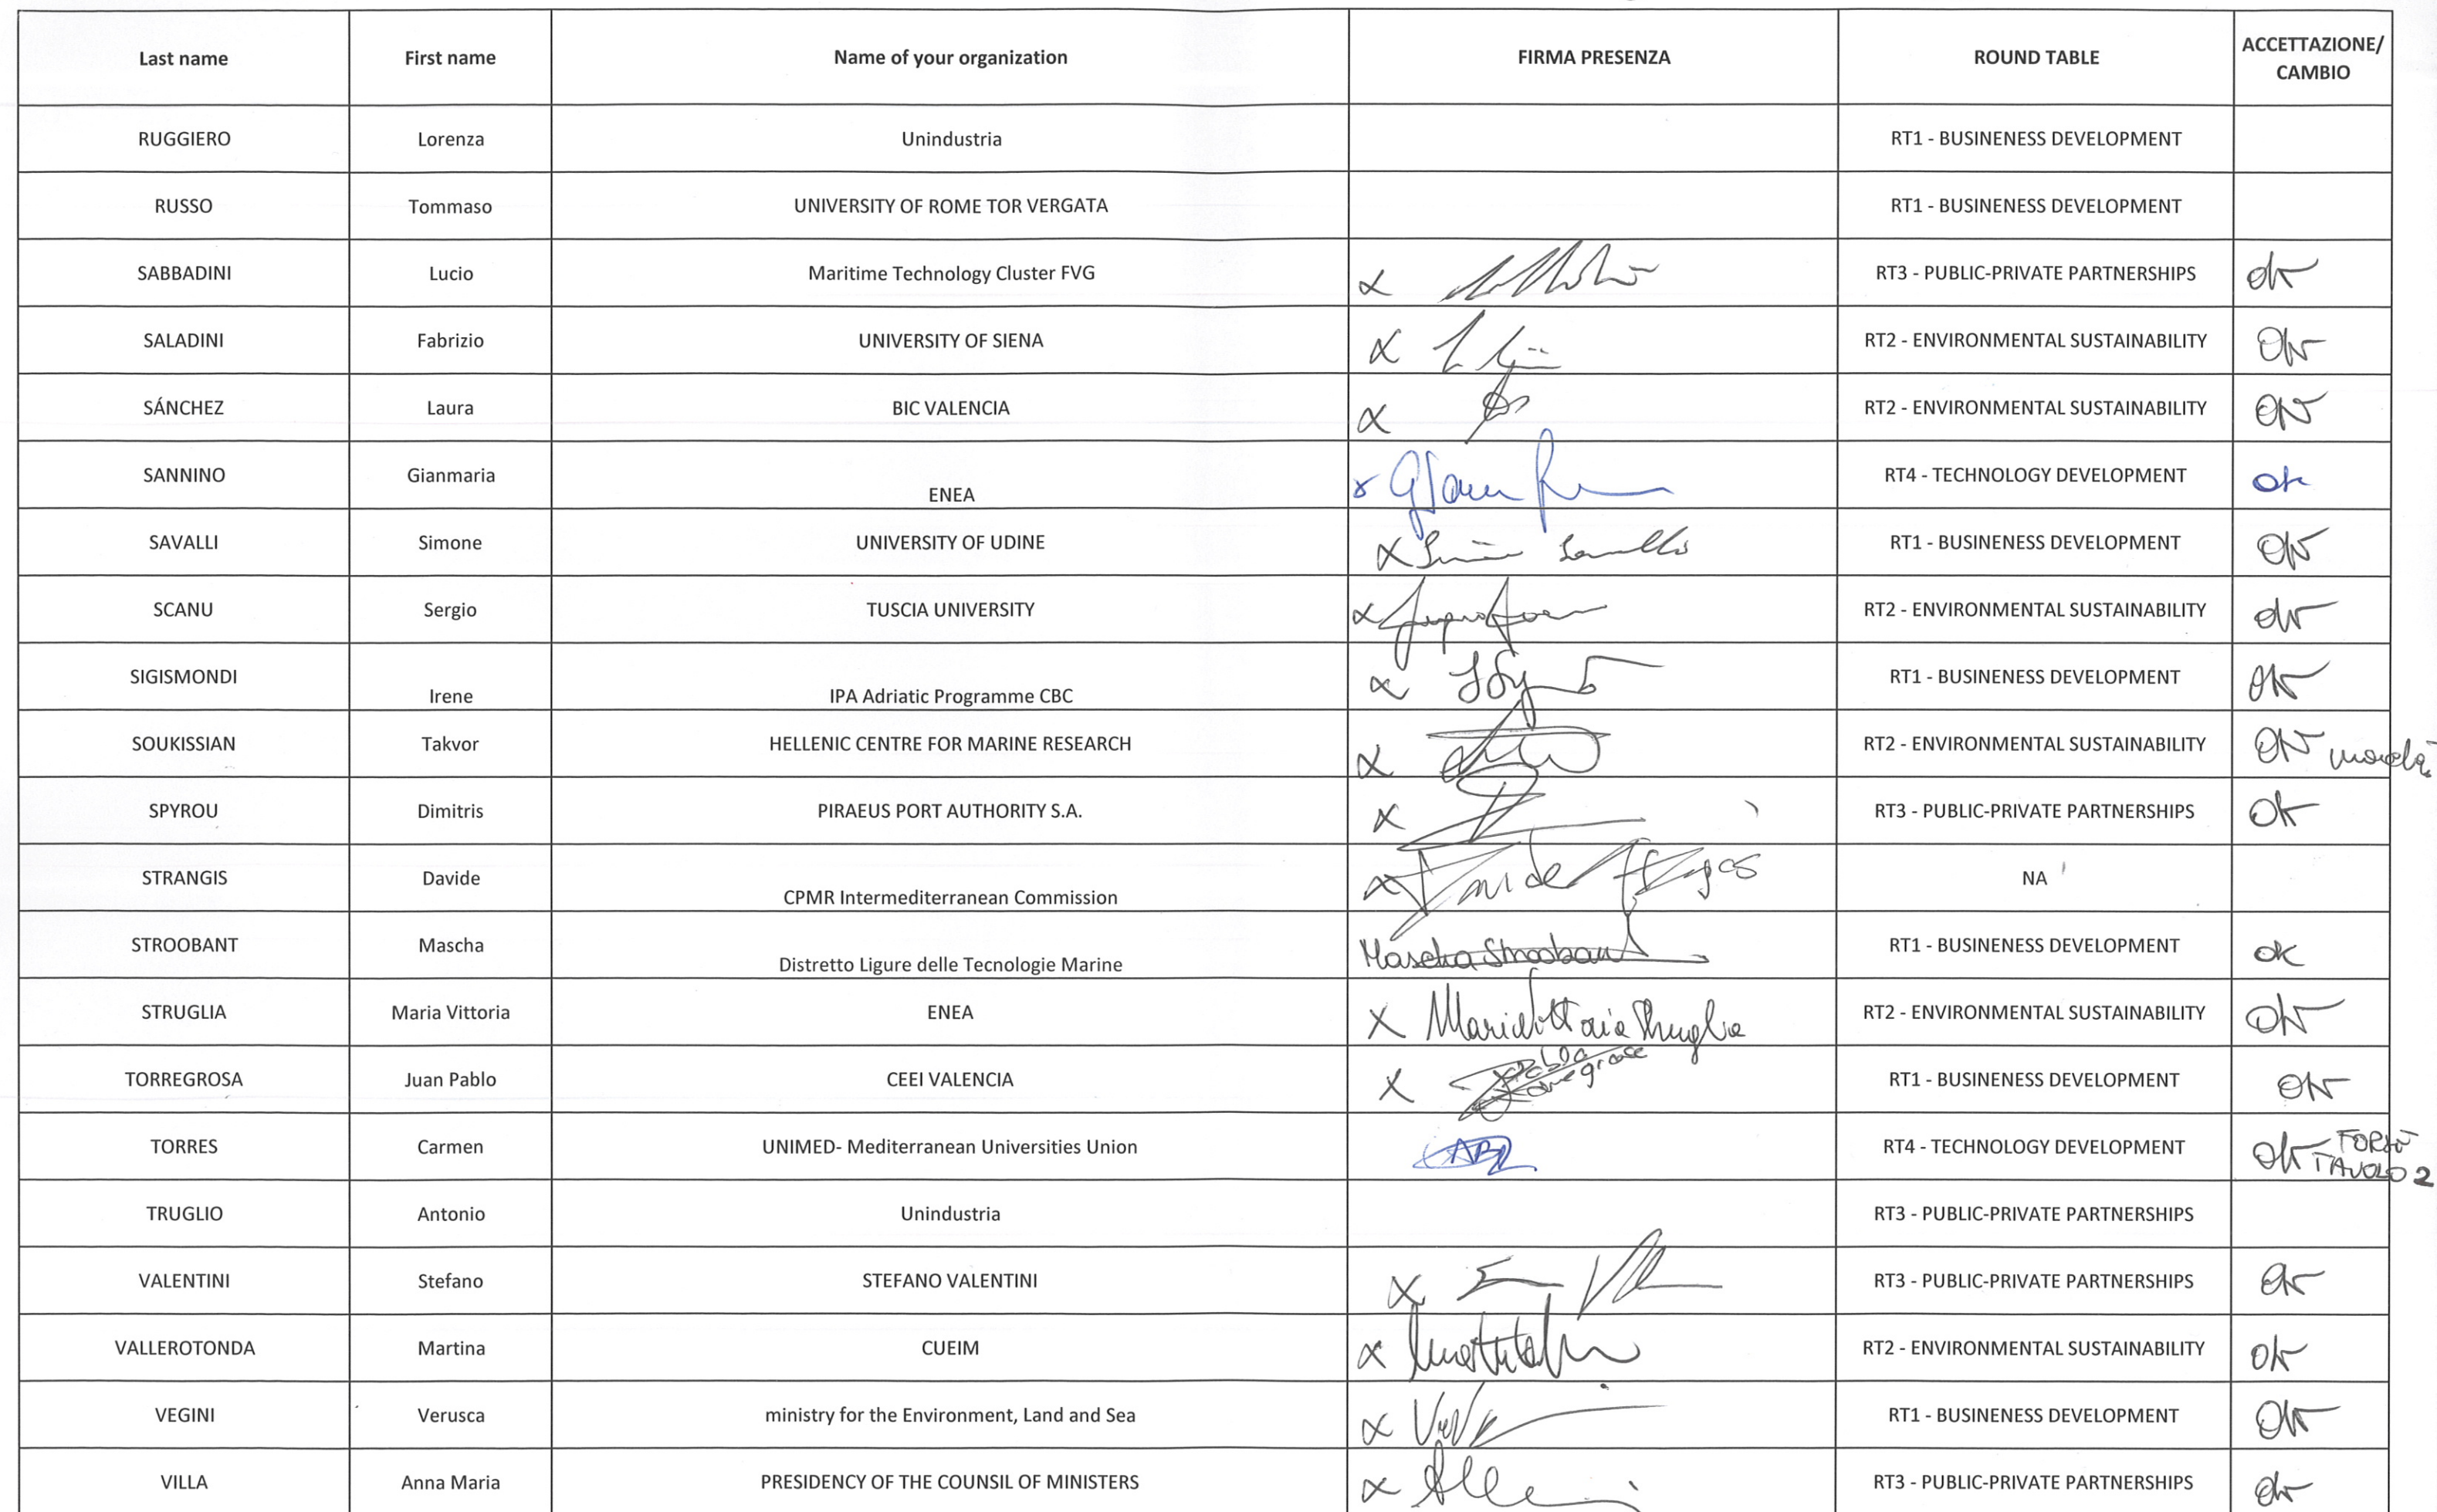 Last name First name Name of your organization FIRMA PRESENZA ROUND TABLE ACCETTAZIONE/
CAMBIO
RUGGIERO Lorenza Unindustria RT1 - BUSINENESS DEVELOPMENT
RUSSO Tommaso UNIVERSITY OF ROME TOR VERGATA RT1 - BUSINENESS DEVELOPMENT
SABBADINI Lucio Maritime Technology Cluster FVG X RT3 - PUBLIC-PRIVATE PARTNERSHIPS ok
SALADINI Fabrizio UNIVERSITY OF SIENA X RT2 - ENVIRONMENTAL SUSTAINABILITY ok
SÁNCHEZ Laura BIC VALENCIA X RT2 - ENVIRONMENTAL SUSTAINABILITY ok
SANNINO Gianmaria ENEA X RT4 - TECHNOLOGY DEVELOPMENT ok
SAVALLI Simone UNIVERSITY OF UDINE X RT1 - BUSINENESS DEVELOPMENT ok
SCANU Sergio TUSCIA UNIVERSITY X RT2 - ENVIRONMENTAL SUSTAINABILITY ok
SIGISMONDI Irene IPA Adriatic Programme CBC X RT1 - BUSINENESS DEVELOPMENT ok
SOUKISSIAN Takvor HELLENIC CENTRE FOR MARINE RESEARCH X RT2 - ENVIRONMENTAL SUSTAINABILITY ok
SPYROU Dimitris PIRAEUS PORT AUTHORITY S.A. X RT3 - PUBLIC-PRIVATE PARTNERSHIPS ok
STRANGIS Davide CPMR Intermediterranean Commission X Davide NA
STROOBANT Mascha Distretto Ligure delle Tecnologie Marine Mascha Stroobant RT1 - BUSINENESS DEVELOPMENT ok
STRUGLIA Maria Vittoria ENEA X Maria Vittoria Struglia RT2 - ENVIRONMENTAL SUSTAINABILITY ok
TORREGROSA Juan Pablo CEEI VALENCIA X RT1 - BUSINENESS DEVELOPMENT ok
TORRES Carmen UNIMED- Mediterranean Universities Union RT4 - TECHNOLOGY DEVELOPMENT ok FORSE
TAVOLO 2
TRUGLIO Antonio Unindustria RT3 - PUBLIC-PRIVATE PARTNERSHIPS
VALENTINI Stefano STEFANO VALENTINI X RT3 - PUBLIC-PRIVATE PARTNERSHIPS ok
VALLEROTONDA Martina CUEIM X RT2 - ENVIRONMENTAL SUSTAINABILITY ok
VEGINI Verusca ministry for the Environment, Land and Sea X RT1 - BUSINENESS DEVELOPMENT ok
VILLA Anna Maria PRESIDENCY OF THE COUNSIL OF MINISTERS X RT3 - PUBLIC-PRIVATE PARTNERSHIPS ok